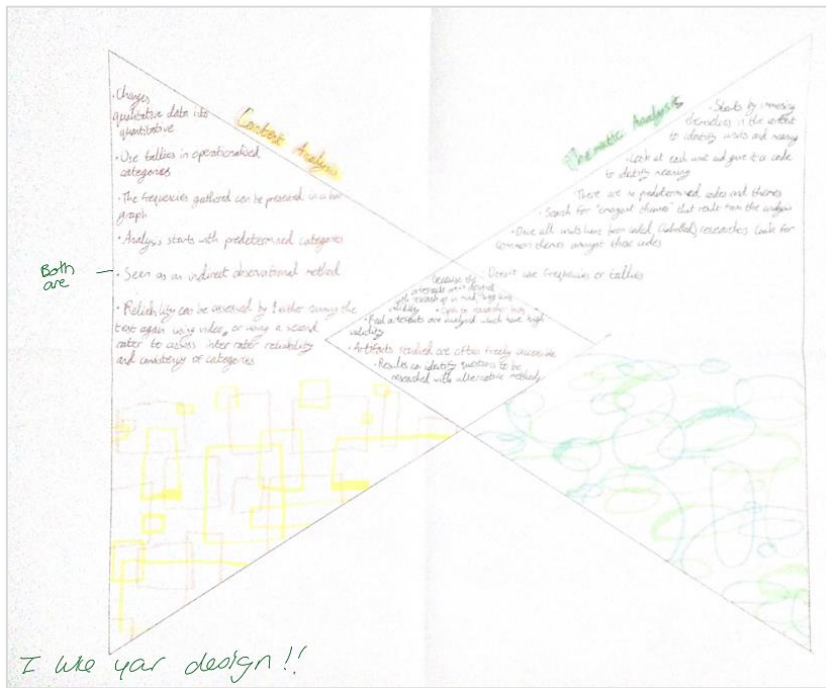 Content Analysis
• Changes
qualitative data into
quantitative
• Use tallies in operationalised
categories
• The frequencies gathered can be presented in a bar
graph
• Analysis starts with predetermined categories
Both
are
- Seen as an indirect observational method
• Reliability can be assessed by either running the
test again using video, or using a second
rater to assess inter rater reliability
and consistency of categories
Thematic Analysis
• Starts by immersing
themselves in the
to identify units and meaning
• Look at each unit and give it a code
to identify meaning
There are no predetermined codes and themes
• Search for "emergent themes" that result from the analysis
• Once all units have been coded, (labelled) researchers look for
common themes amongst those codes
• Doesn't use frequencies or tallies
because the
artefacts weren't
with research in mind,
validity • Open to researcher bias
• Real artefacts are analysed which have high
validity
• Artifacts studied are often freely accessible
• Results can identify questions to be
researched with alternative methods
I like your design!!